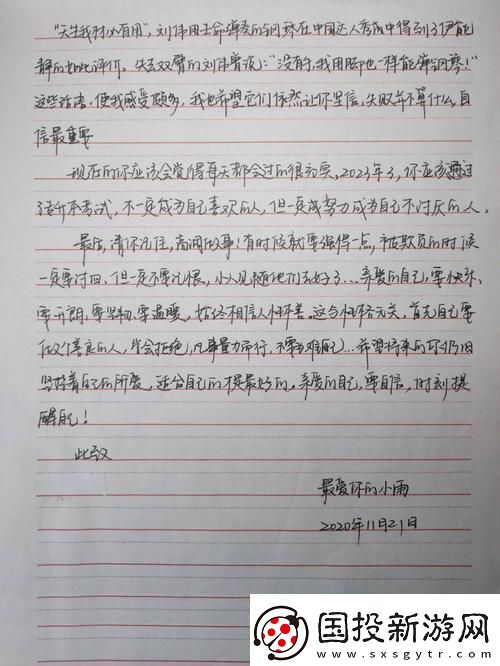 “天生我材必有用”，刘伟用生命弹奏的钢琴在中国达人秀尚中得到了伊能
静的如此评价。失去双臂的刘伟曾说：“没有手，我用脚也一样能弹钢琴！”
这些话语，使我感受颇多，我也希望它们依然让你坚信，失败并不算什么，自
信最重要
现在的你应该会觉得每天都会过的很充实，2023年了，你应该通过
专升本考试，不一定成为自己喜欢的人，但一定成努力成为自己不讨厌的人。
最后，请你记住，高调做事！有时候就要强得一点，被欺负的时候
一定要讨回，但一定不要记恨，小人见随他们去好了…亲爱的自己，要快乐、
要开朗、要坚韧、要温暖，始终相信人性本善。这与性格无关，首先自己要
做个善良的人，学会拒绝，凡事量力而行，不要为难自己…希望将来的你仍旧
坚持着自己的所爱，适合自己的才是最好的。亲爱的自己，要自信，时刻提
醒自己！
此致
最爱你的小雨
2020年11月21日
国投新游网
www.sxsgytr.com